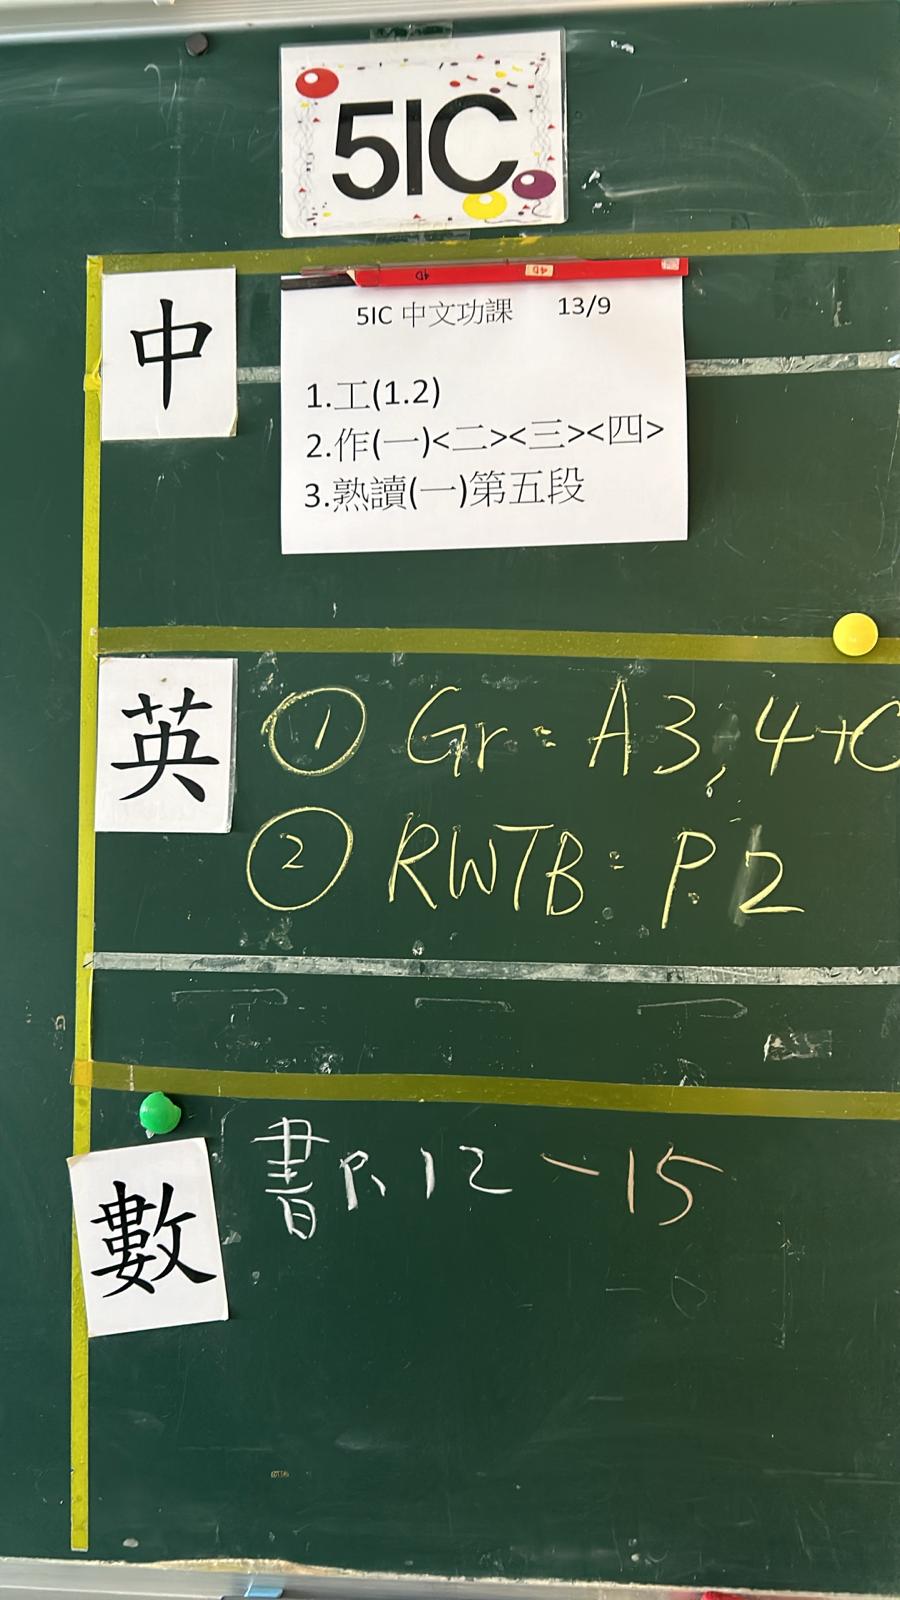 5IC
中
5IC 中文功課 13/9
1.工(1.2)
2.作(一)<二><三><四>
3.熟讀(一)第五段
英
① Gr: A3, 4+C
② RWTB: P.2
數
書P. 12-15